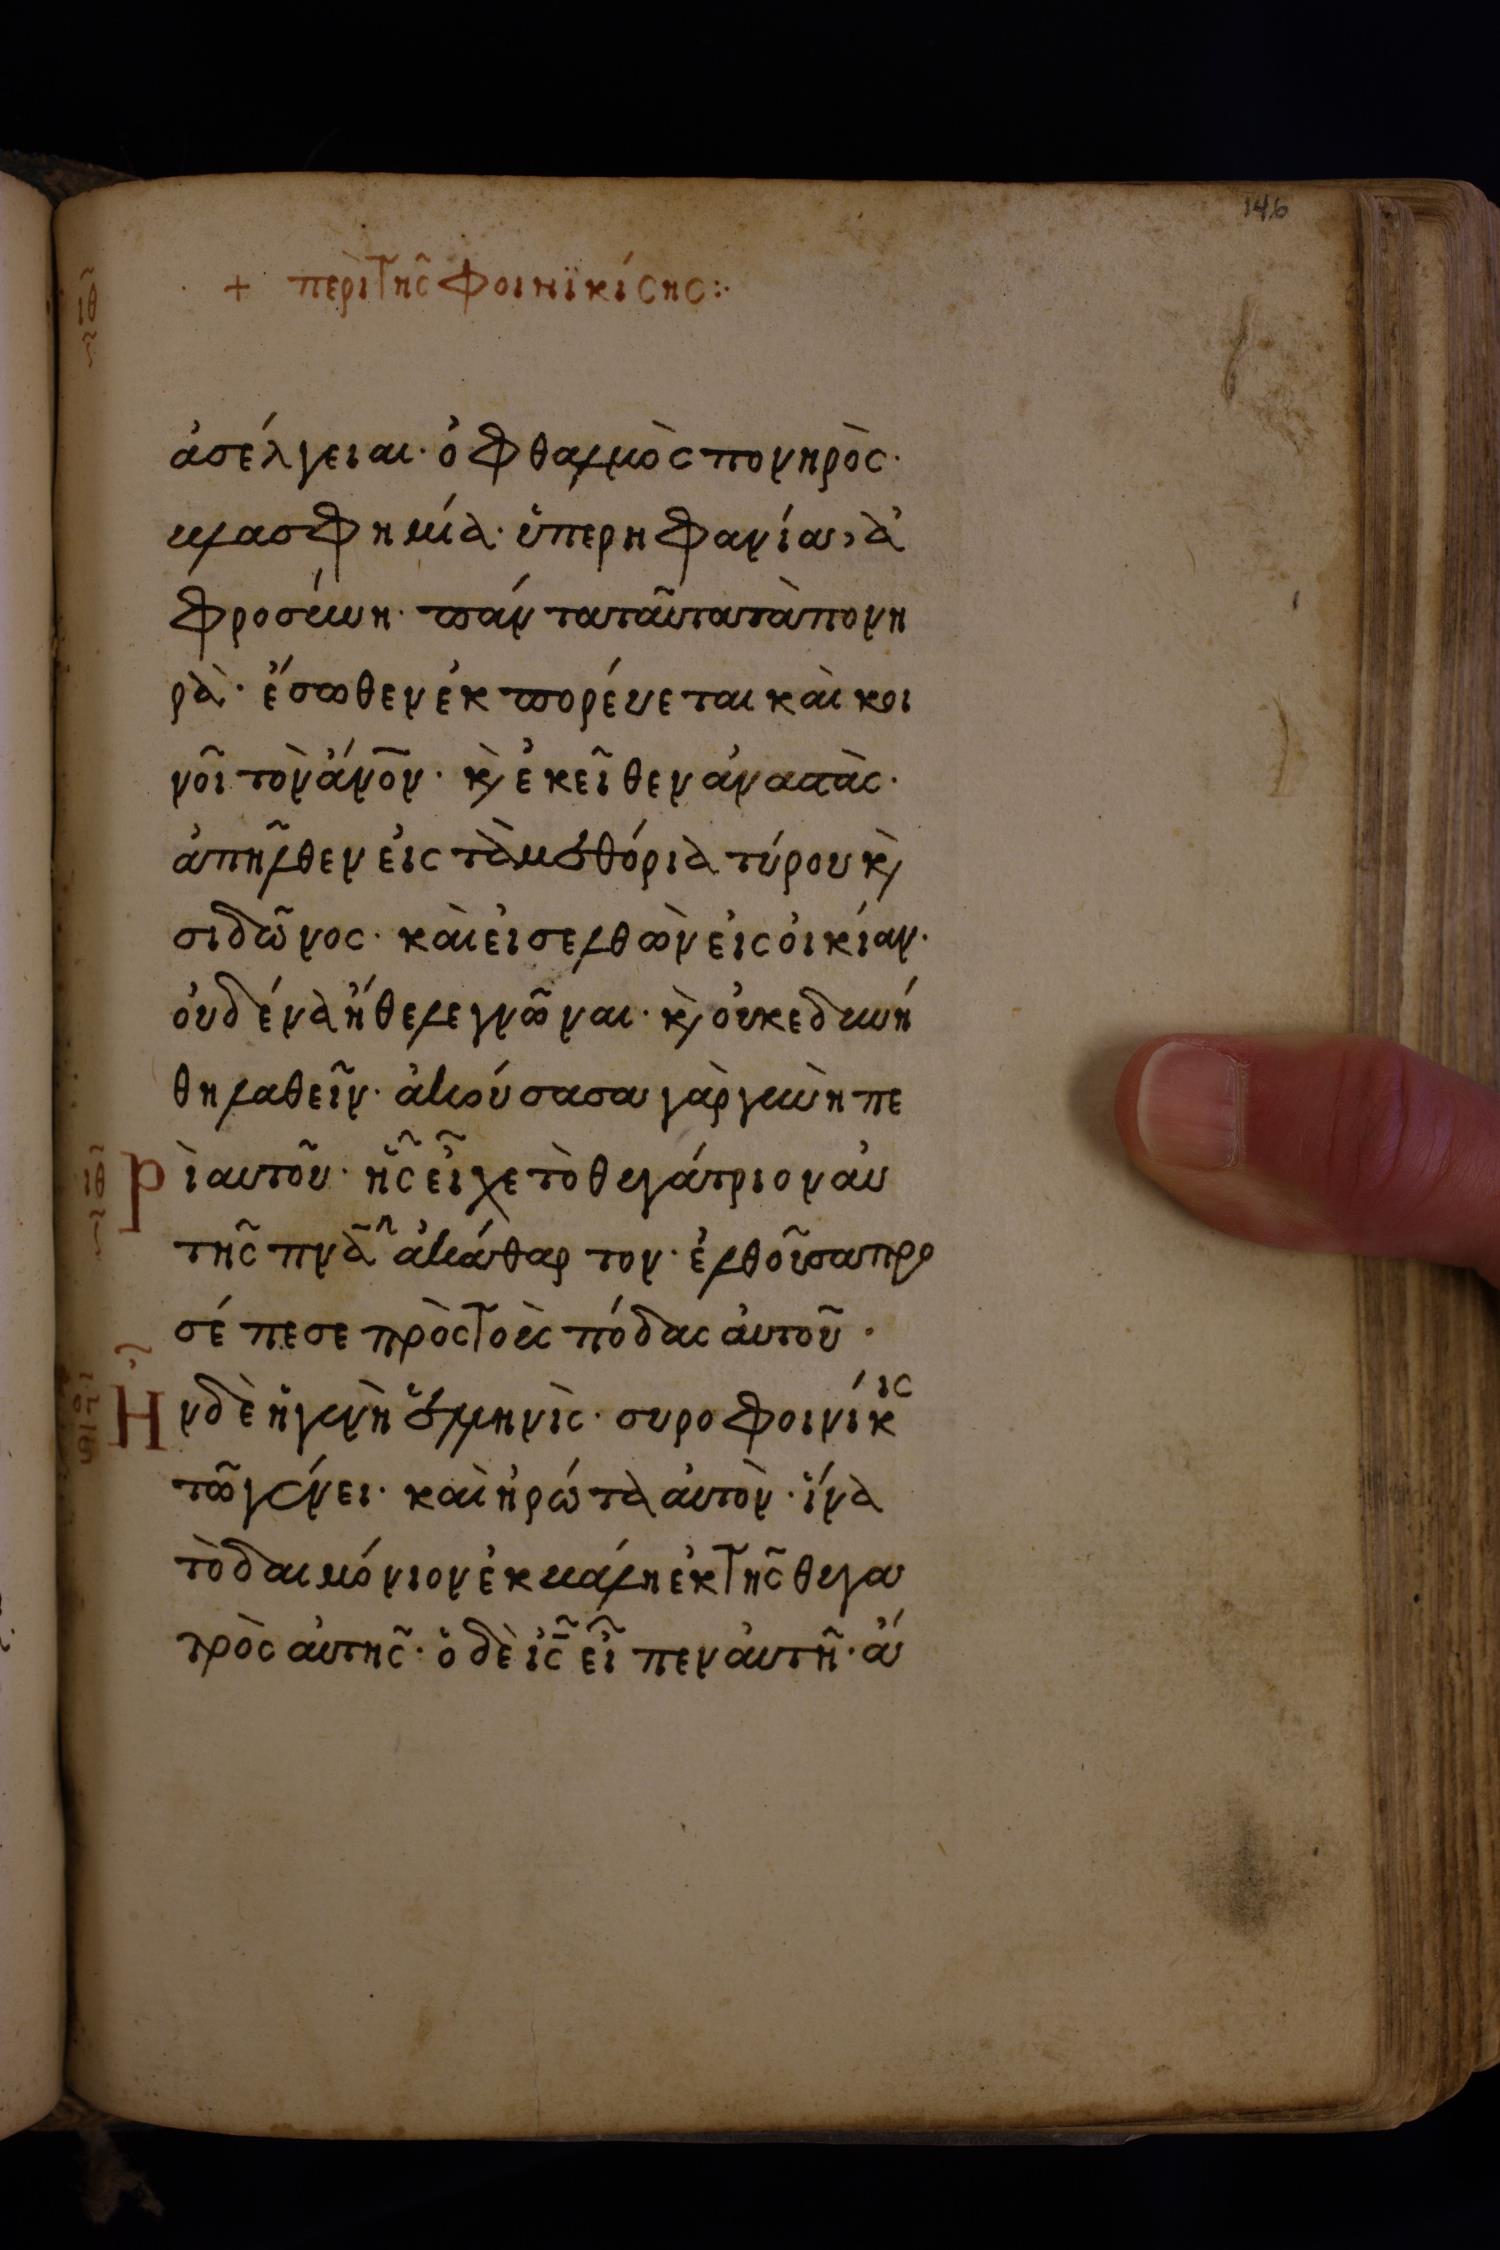 146
ιθ
+ περὶ τῆς Φοινϊκίσης :·
ἀσέλγειαι· ὀφθαλμὸς πονηρὸς·
βλασφημία· ὑπερηφανία, ἀ
φροσύνη· πάντα ταῦτα τὰ πονη
ρὰ· ἔσωθεν ἐκπορεύεται καὶ κοι
νοῖ τὸν ἄνον· κὶ ἐκεῖθεν ἀναστὰς·
ἀπῆλθεν εἰς τὰ μεθόρια τύρου κὶ
σιδῶνος· καὶ εισελθὼν εἰς οἰκίαν·
οὐδένα ἤθελε γνῶναι· κὶ οὐκ εδυνή
θη λαθεῖν· ἀκούσασα γὰρ γυνὴ πε
ιθ
Ρὶ αυτοῦ· ἧς εἶχε τὸ θυγάτριον αὐ
τῆς πνᾶ ἀκάθαρτον· ἐλθοῦσα προ
σέπεσε πρὸς τοὺς πόδας ἀυτοῦ·
Ην δὲ ἡ γυνὴ ἑλληνὶς· συροφοινίκις
τῶ γένει· καὶ ἠρώτα ἀυτὸν· ἵνα
τὸ δαιμόνιον ἐκβάλη ἐκ τῆς θυγα
τρὸς ἀυτῆς· ὁ δὲ ις εἶπεν ἀυτῆ· ἄ